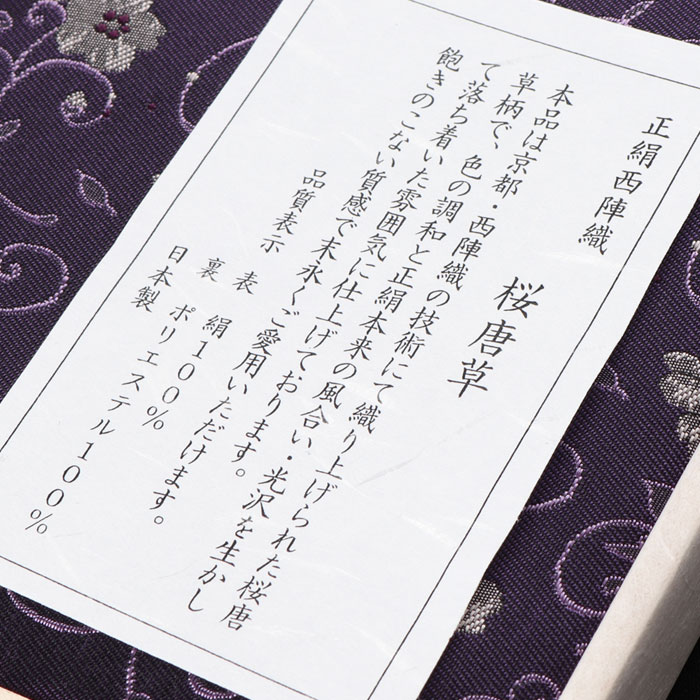 正絹西陣織
桜唐草
本品は京都・西陣織の技術にて織り上げられた桜唐
草柄で、色の調和と正絹本来の風合い・光沢を生かし
て落ち着いた雰囲気に仕上げております。
飽きのこない質感で末永くご愛用いただけます。
品質表示
表 絹100%
裏 ポリエステル100%
日本製